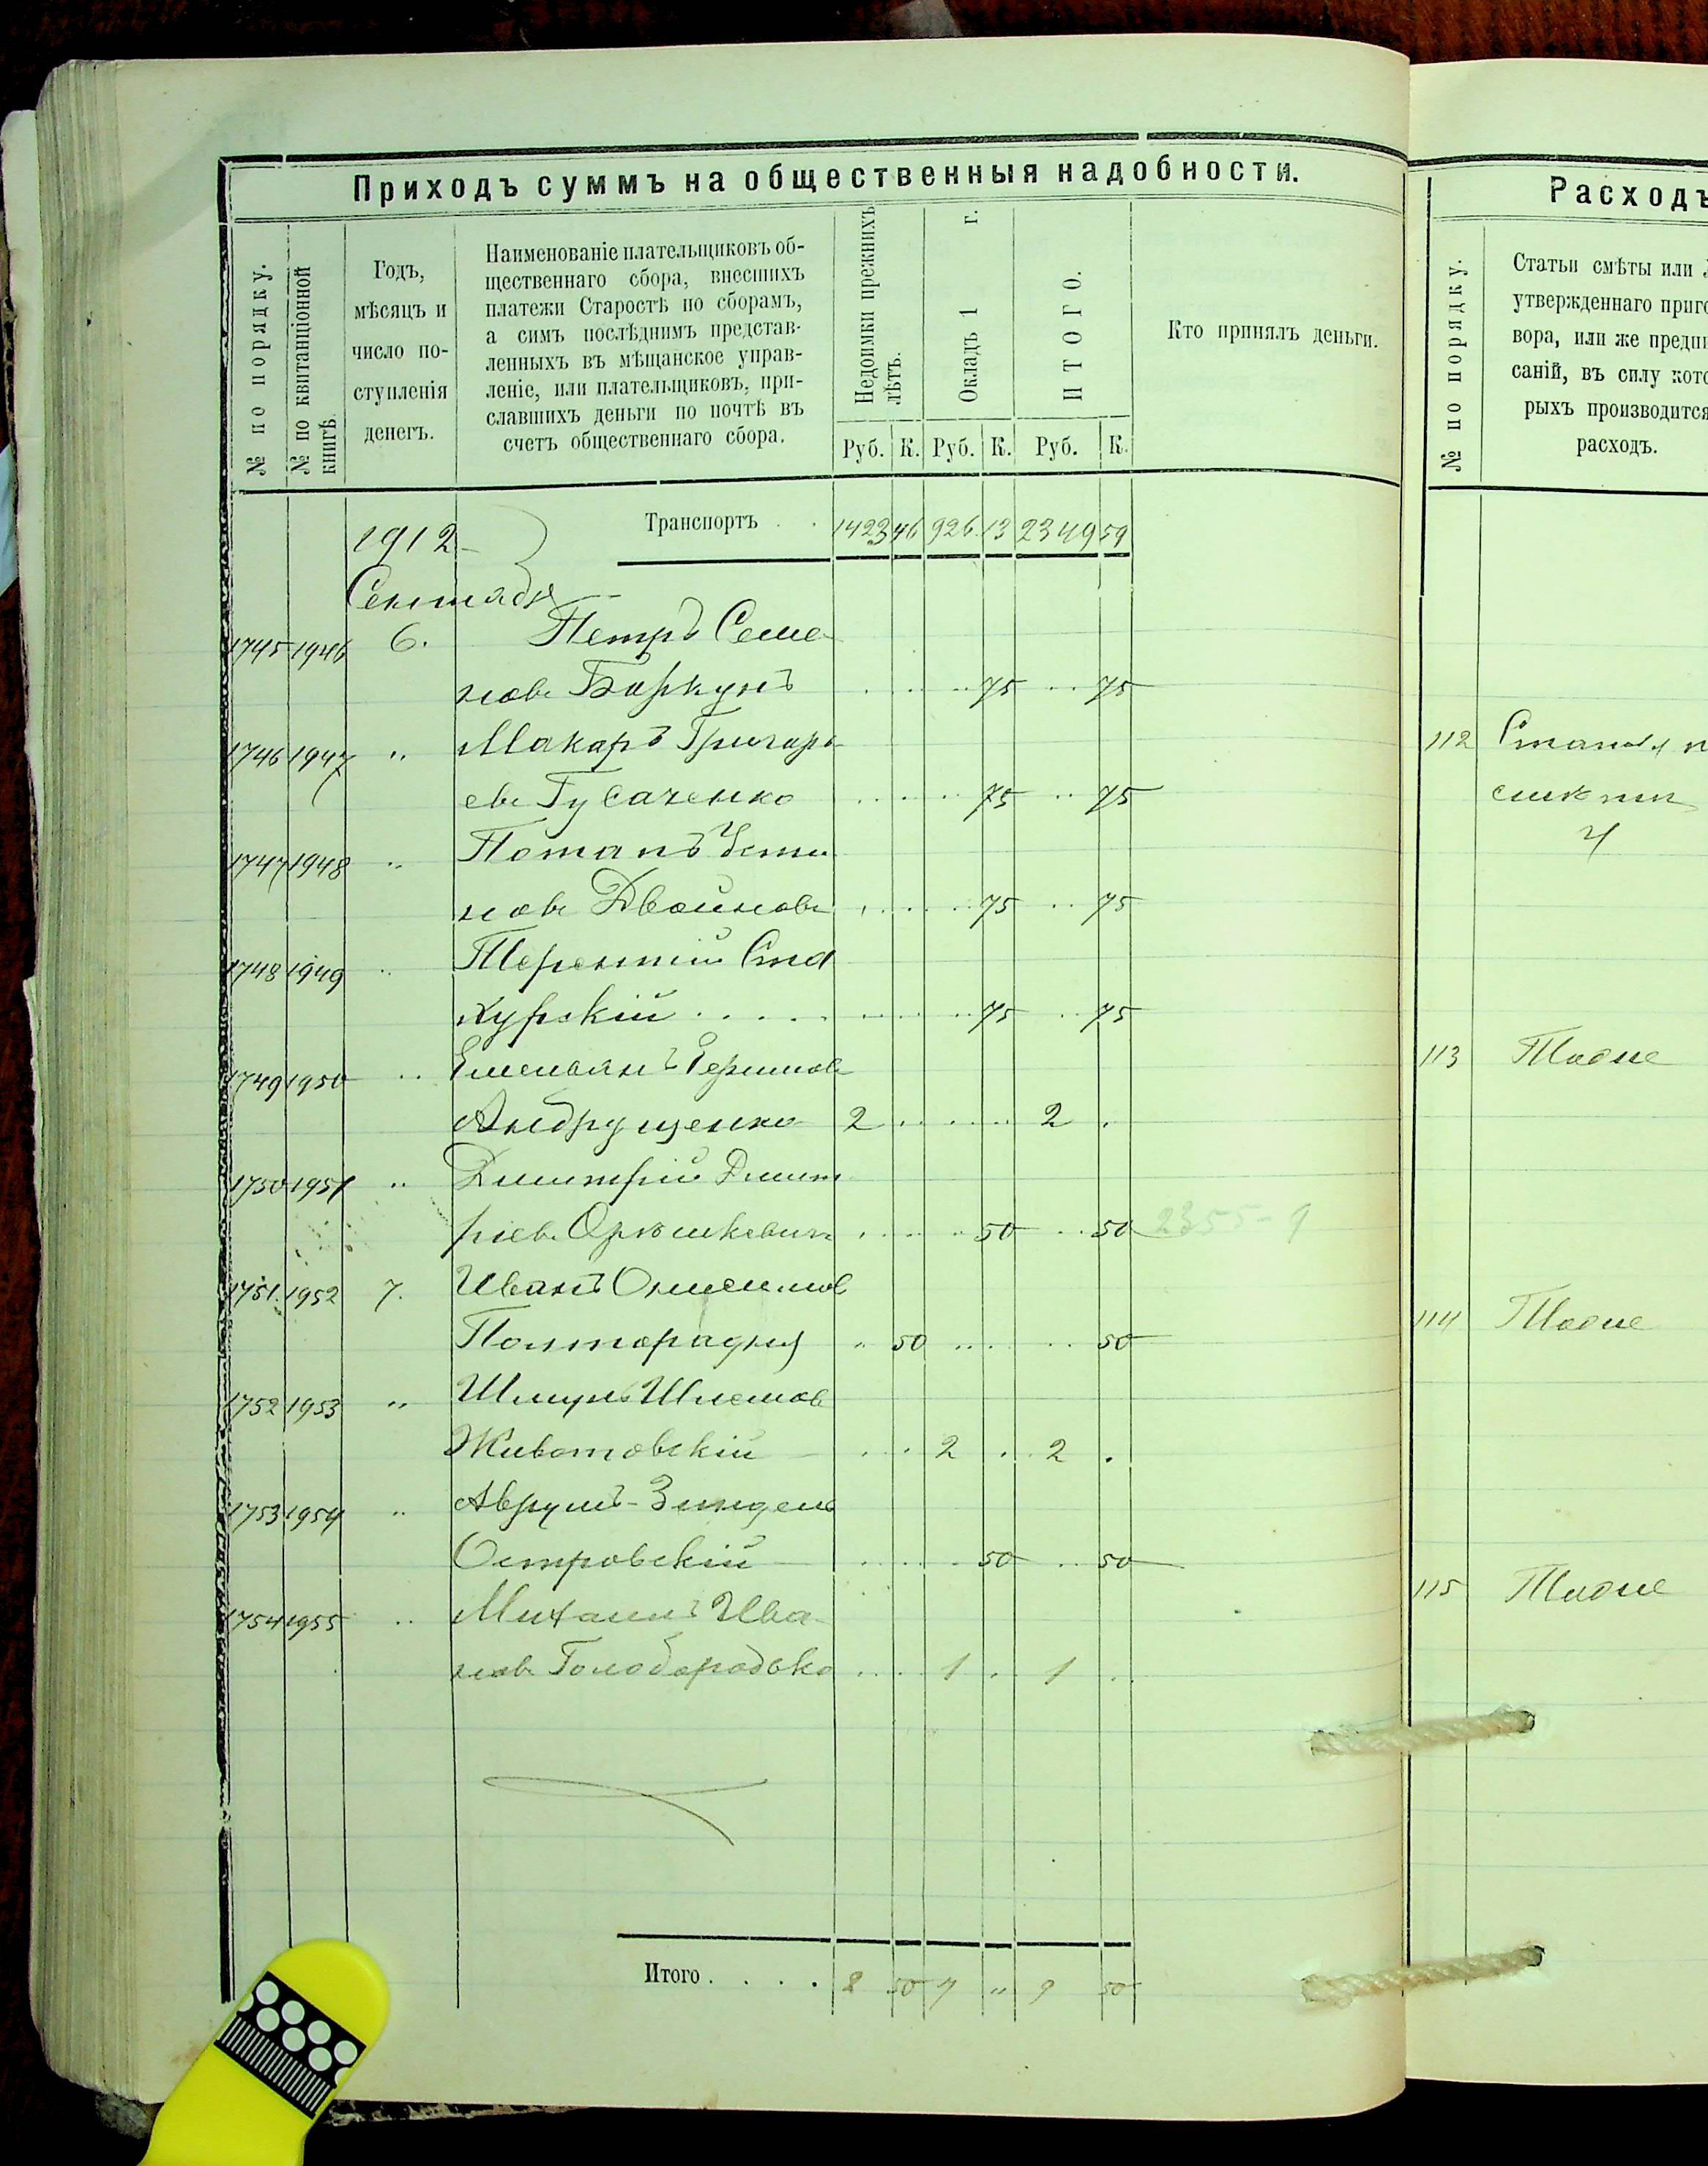 Приходъ суммъ на общественныя надобности.
№ по порядку.
№ по квитанціонной книгѣ.
Годъ,
мѣсяцъ и
число по-
ступленія
денегъ.
Наименованіе плательщиковъ об-
щественнаго сбора, внесшихъ
платежи Старостѣ по сборамъ,
а симъ послѣднимъ представ-
ленныхъ въ мѣщанское управ-
леніе, или плательщиковъ, при-
славшихъ деньги по почтѣ въ
счетъ общественнаго сбора.
Недоимки прежнихъ
лѣтъ.
Окладъ 1 г.
ИТОГО.
Кто принялъ деньги.
Руб. К. Руб. К. Руб. К.
1912 Транспортъ . . 1423 46 926 13 2349 59
Сентябя
1745 1946 6. Петръ Семе-
новъ Боркунъ 75 75
1746 1947 " Макаръ Григорь-
евъ Гусаченко 75 75
1747 1948 " Потапъ Усти
новъ Двойновъ 75 75
1748 1949 " Терентій Ста
хурскій 75 75
1749 1950 " Емельянъ
Андрущенко 2 2
1750 1951 " Димитрій Димит
ріевъ Орюшкевичъ 50 50 2355-9
1751 1952 7. Иванъ Онисимов
50 50
1752 1953 " Шмуль Шлемов
Животовскій 2 2
1753 1954 " Аврумъ-Зинделъ
Островскій 50 50
1754 1955 " Михаилъ Ива-
новъ Голобородько 1 1
Итого . . . . 2 50 7 " 9 50
Расходъ
№ по порядку.
Статьи смѣты или
утвержденнаго приго
вора, или же предпи
саній, въ силу кото
рыхъ производится
расходъ.
112
4
113 Тоже
114 Тоже
115 Тоже